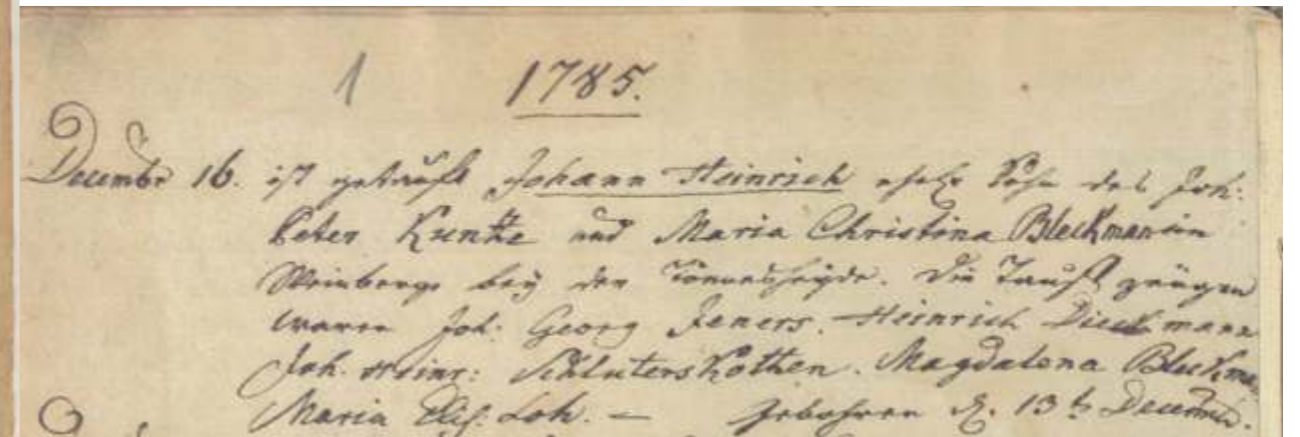 1 1785.
Decembr 16. ist getauft Johann Heinrich ehel. Sohn des Joh:
Peter Kuntze und Maria Christina Bleckmann
Weinberge bey der Tönnesheyde. Die Taufzeugen
waren Joh: Georg Jeners. Heinrich Dieckmann
Joh. Heinr: Schluterskothen. Magdalena Bleckma
Maria Elis. Loh. — gebohren d. 13ts Decembr.